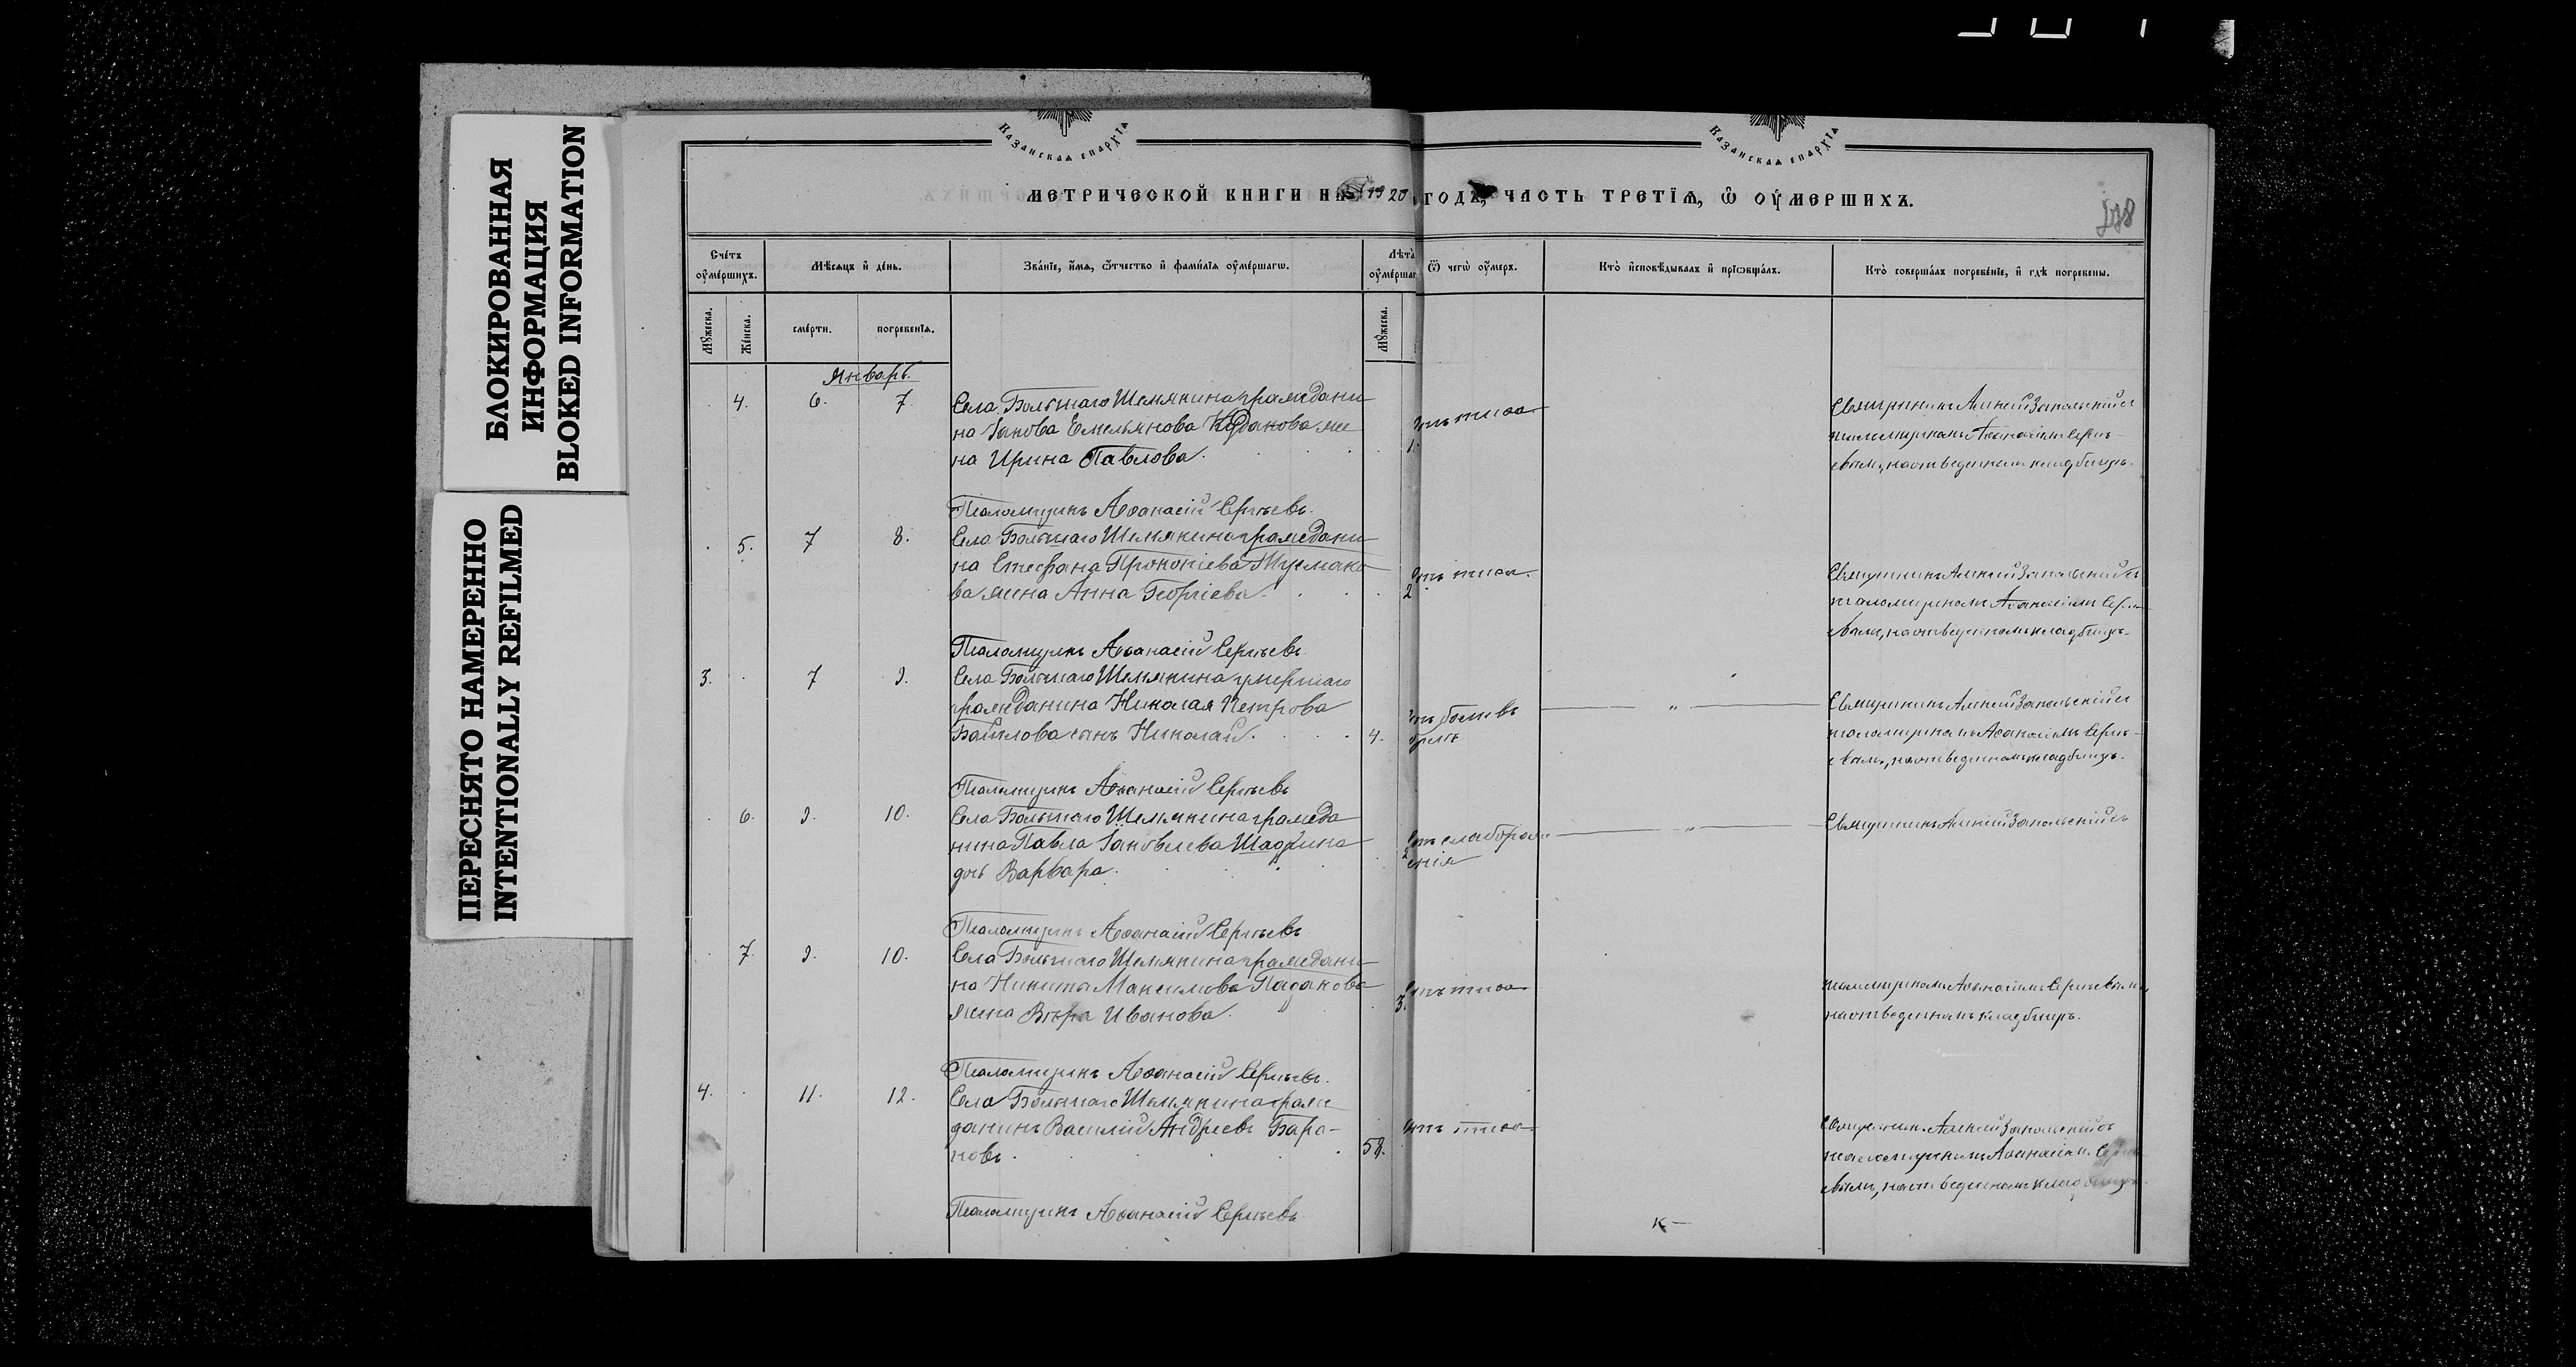 БЛОКИРОВАННАЯ
ИНФОРМАЦИЯ
BLOKED INFORMATION
ПЕРЕСНЯТО НАМЕРЕННО
INTENTIONALLY REFILMED
Казанская епархїя
Казанская епархїя
МЕТРИЧЕСКОЙ КНИГИ НА 1920 ГОДЪ, ЧАСТЬ ТРЕТЇЯ, Ѿ ОУМЕРШИХЪ.
Сче́тъ оумершихъ.
Мѣсяцъ и҆ де́нь.
Зва́нїе, и҆́мя, ѻ҆́тчество и҆ фами́лїя оумершагѡ.
Лѣта̀ оумершаг
Ѿ чегѡ̀ оумеръ.
Кто̀ и҆сповѣдывалъ и҆ прїѡбща́лъ.
Кто̀ соверша́лъ погребе́нїе, и҆ гдѣ погребены.
Мꙋжеска.
Же́нска.
сме́рти.
погребенїя.
Мꙋжеска.
Январь.
4. 6. 7. Села Большаго Шемякина граждани
на Іакова Емельянова же
на Ирина Павлова. 1. Отъ тифа
Священникъ Алексій Запольскій съ
псаломщикомъ Аѳанасіемъ Сергѣ-
евымъ, на отведенномъ кладбищѣ.
Псаломщикъ Аѳанасій Сергѣевъ.
5. 7 8. Села Большаго Шемякина граждани
на Стефана Прокопіева
ва жена Анна Георгіева. 2 Отъ тифа.
Священникъ Алексій Запольскій съ
псаломщикомъ Аѳанасіемъ Сергѣ
евымъ, на отведенномъ кладбищѣ.
Псаломщикъ Аѳанасій Сергѣевъ
3. 7 9. Села Большаго Шемякина умершаго
гражданина Николая Петрова
сынъ Николай. 4. Отъ боли въ
горлѣ
"
Священникъ Алексій Запольскій съ
псаломщикомъ Аѳанасіемъ Сергѣ-
евымъ, на отведенномъ кладбищѣ.
Псаломщикъ Аѳанасій Сергѣевъ
6. 9. 10. Села Большаго Шемякина гражда
нина Павла Іаковлева
дочь Варвара. Отъ слаборож
енія
"
Священникъ Алексій Запольскій съ
Псаломщикъ Аѳанасій Сергѣевъ
7. 9. 10. Села Большаго Шемякина граждани
на Никиты Максимова
жена Вѣра Иванова. 3. Отъ тифа
псаломщикомъ Аѳанасіемъ Сергѣевымъ,
на отведенномъ кладбищѣ.
Псаломщикъ Аѳанасій Сергѣевъ.
4. 11. 12. Села Большаго Шемякина граж
данинъ Василій Андреевъ Бара-
новъ. 58. Отъ тифа
Священник. Алексій Запольскій съ
псаломщикомъ Аѳанасіемъ Сергѣ
евымъ, на отведенномъ кладбищѣ
Псаломщикъ Аѳанасій Сергѣевъ
к—